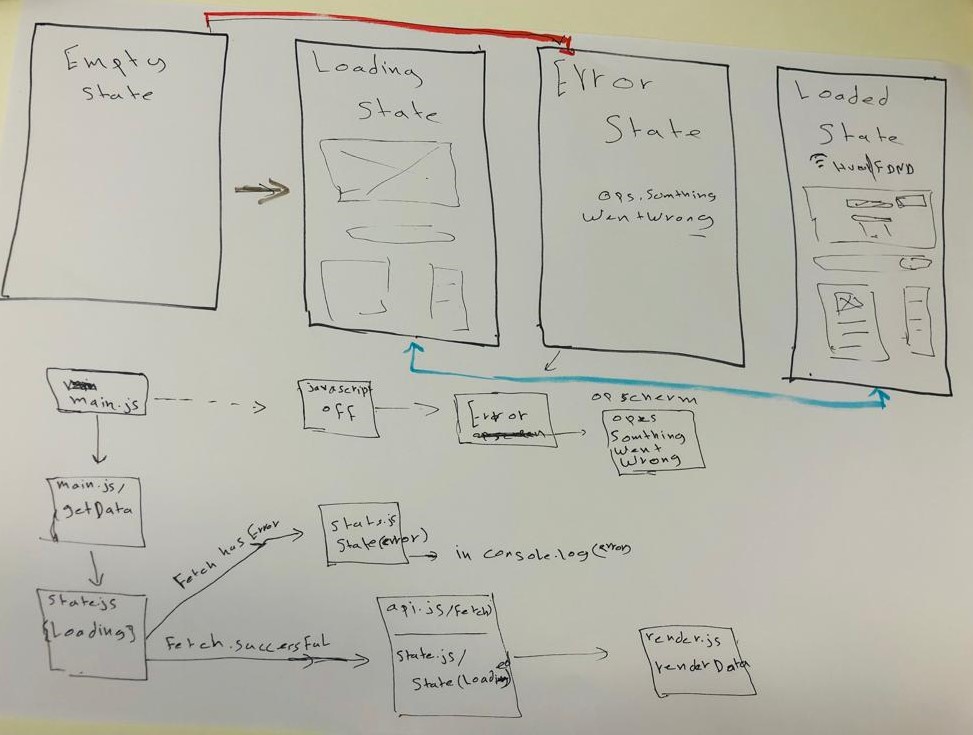 Empty
state
Loading
State
Error
State
ops, Somthing
Went Wrong
Loaded
State
main.js
javascript
off
Error
op scherm
opes
Somthing
Went
Wrong
main.js/
getData
Fetch has Error
State.js
State(error)
in console.log(error)
State.js
{Loading}
Fetch.successful
api.js/Fetch)
State.js/
State(Loaded)
render.js
renderData